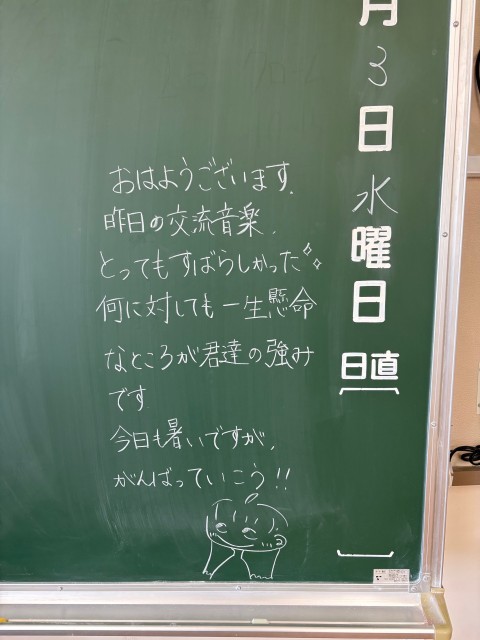 月3日水曜日
日直
おはようございます.
昨日の交流音楽,
とってもすばらしかった
何に対しても一生懸命
なところが君達の強み
です
今日も暑いですが,
がんばっていこう!!